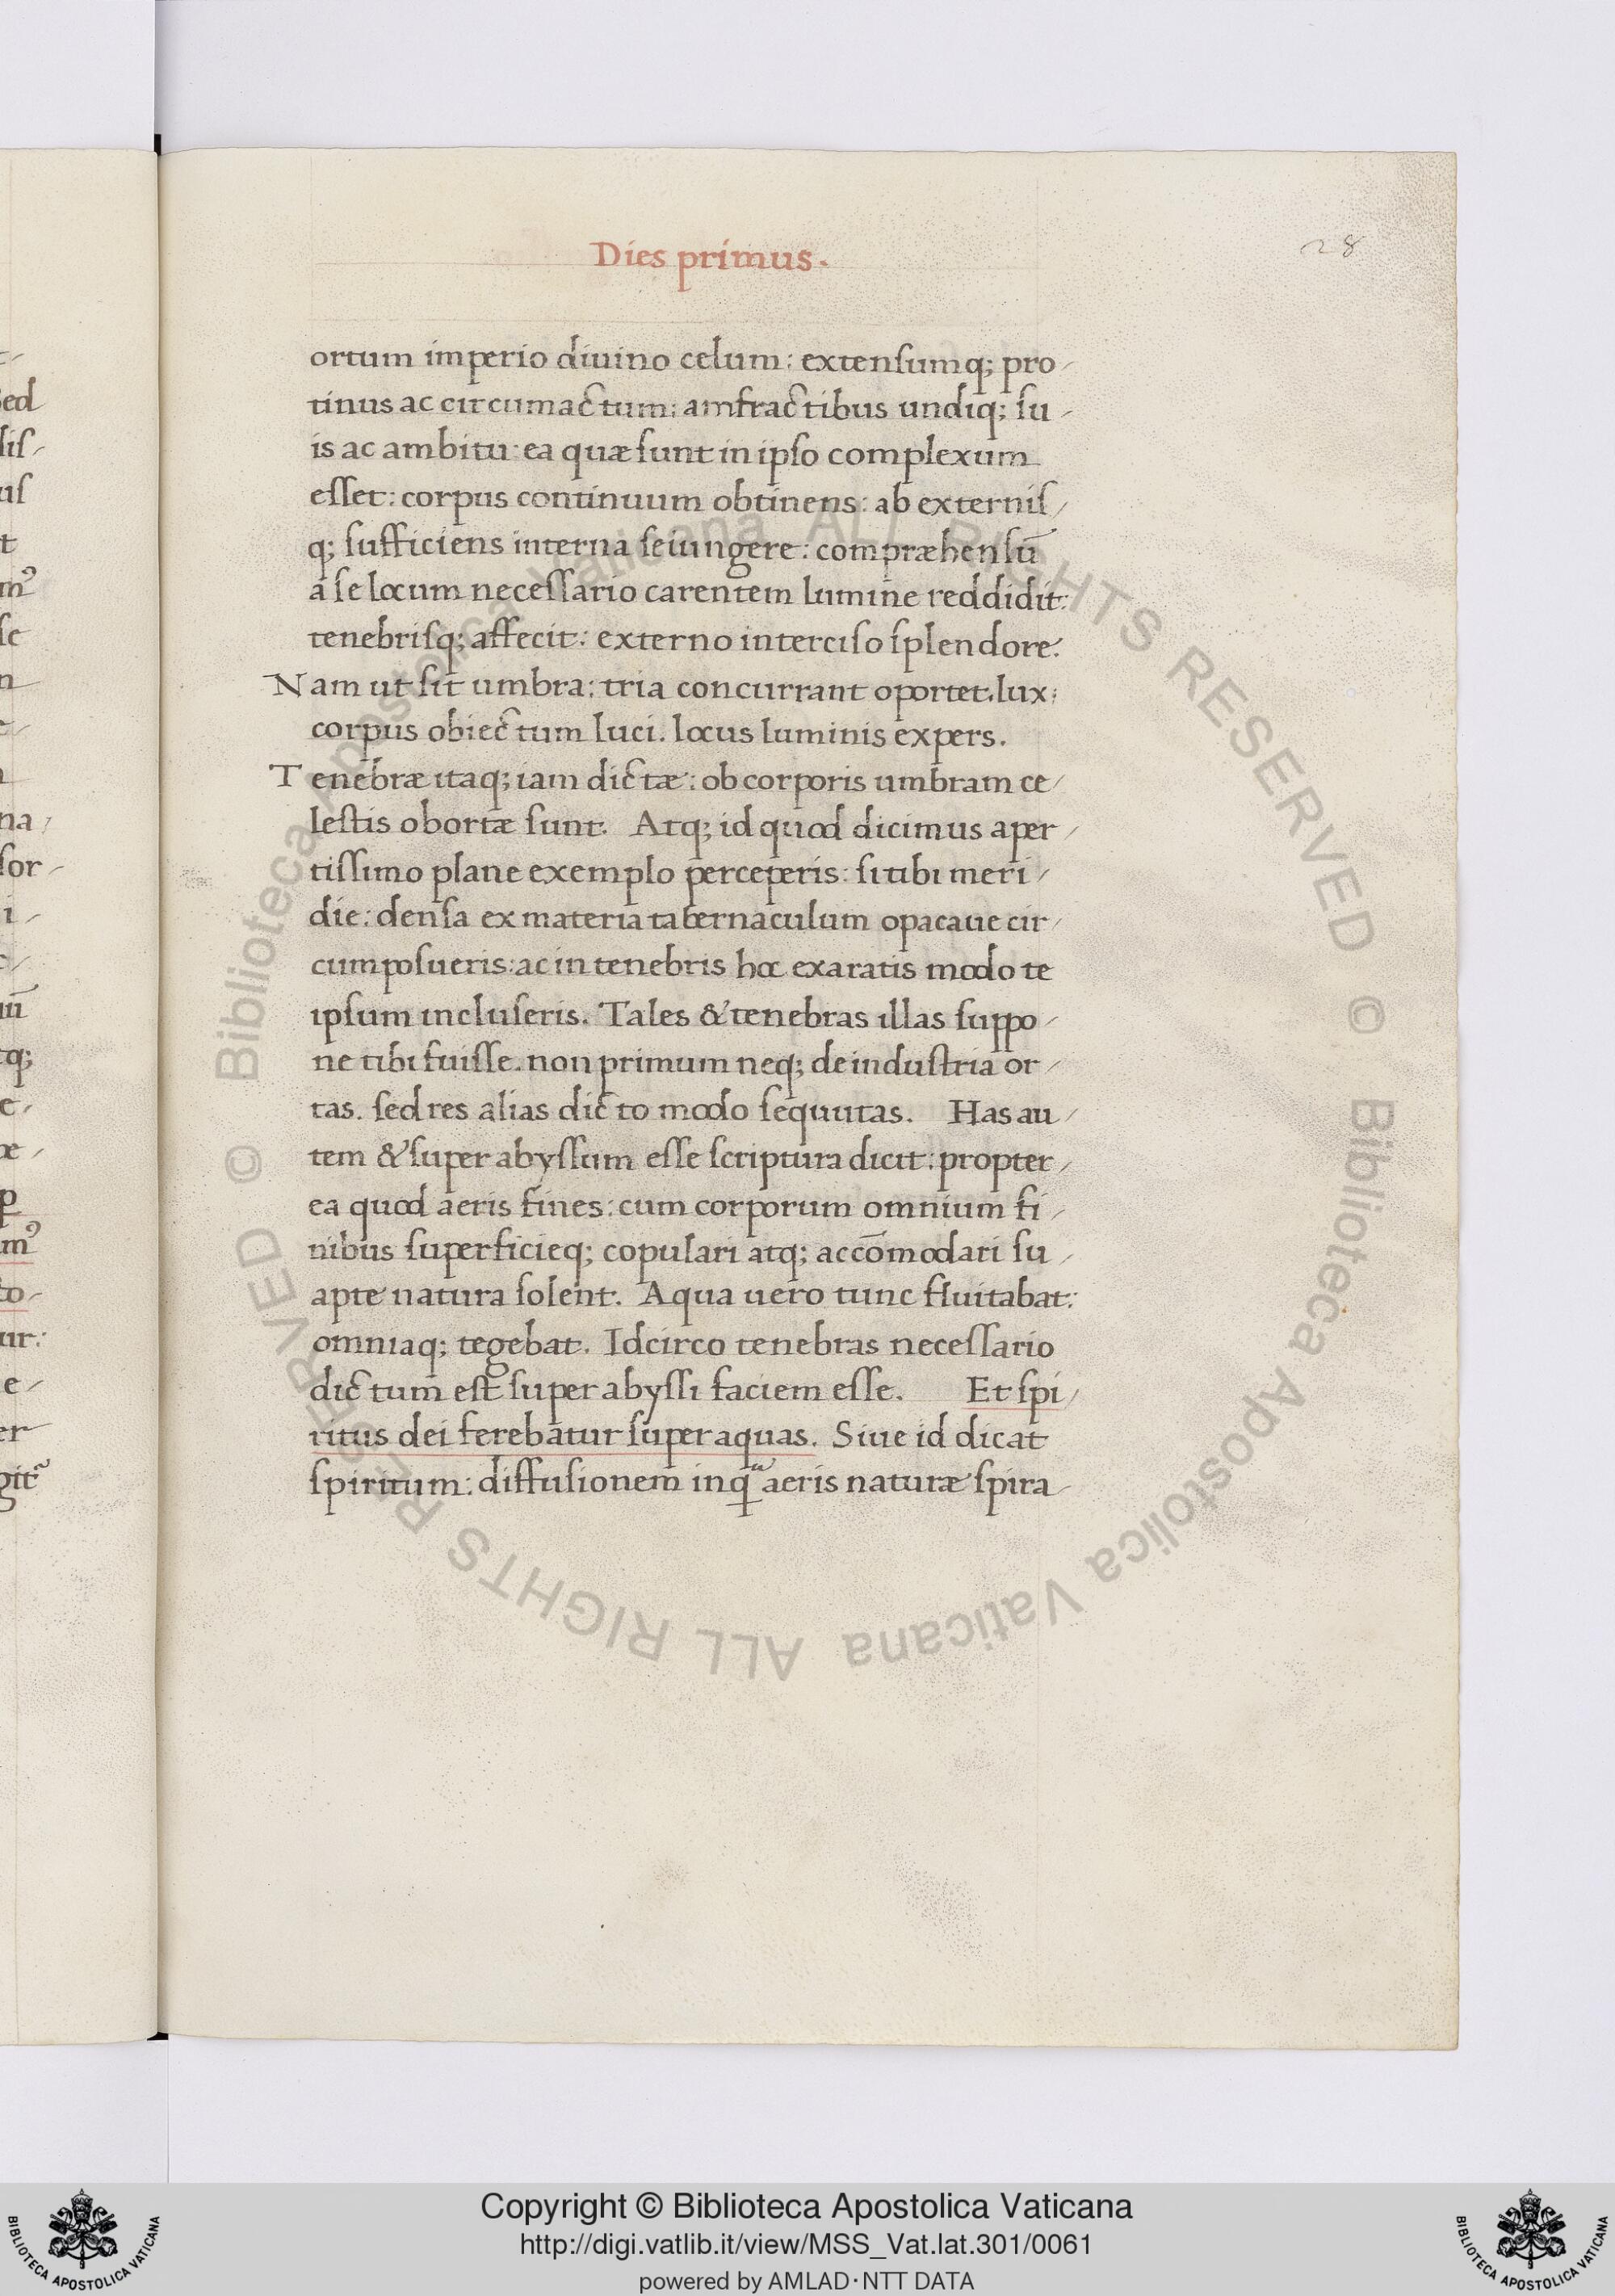 Dies primus.
28
ortum imperio diuino celum: extensumq; pro-
tinus ac circumactum: amfractibus undiq; su-
is ac ambitu: ea quæ sunt in ipso complexum
esset: corpus continuum obtinens: ab externis-
q; sufficiens interna seiungere: compræhensū
a se locum necessario carentem lumine reddidit:
tenebrisq; affecit: externo interciso splendore.
Nam ut sit umbra: tria concurrant oportet. lux:
corpus obiectum luci. locus luminis expers.
Tenebræ itaq; iam dictæ: ob corporis umbram ce-
lestis obortæ sunt. Atq; id quod dicimus aper-
tissimo plane exemplo perceperis: si tibi meri-
die: densa ex materia tabernaculum opacaue cir-
cumposueris: ac in tenebris hoc exaratis modo te
ipsum incluseris. Tales & tenebras illas suppo-
ne tibi fuisse. non primum neq; de industria or-
tas. sed res alias dicto modo sequutas. Has au-
tem & super abyssum esse scriptura dicit: propter-
ea quod aeris fines: cum corporum omnium fi-
nibus superficieq; copulari atq; accōmodari su-
apte natura solent. Aqua uero tunc fluitabat:
omniaq; tegebat. Idcirco tenebras necessario
dictum est super abyssi faciem esse. Et spi-
ritus dei ferebatur super aquas. Siue id dicat
spiritum: diffusionem inqᷓ aeris naturæ spira-
ed
lis-
us
t
m̉
se
n
na-
sor-
i-
c-
uū
tq;
e-
æ-
p
m̉
to-
ur:
e-
er
git̃
© Biblioteca Apostolica Vaticana ALL RIGHTS RESERVED © Biblioteca Apostolica Vaticana ALL RIGHTS RESERVED
Copyright © Biblioteca Apostolica Vaticana
http://digi.vatlib.it/view/MSS_Vat.lat.301/0061
powered by AMLAD·NTT DATA
BIBLIOTECA APOSTOLICA VATICANA
BIBLIOTECA APOSTOLICA VATICANA